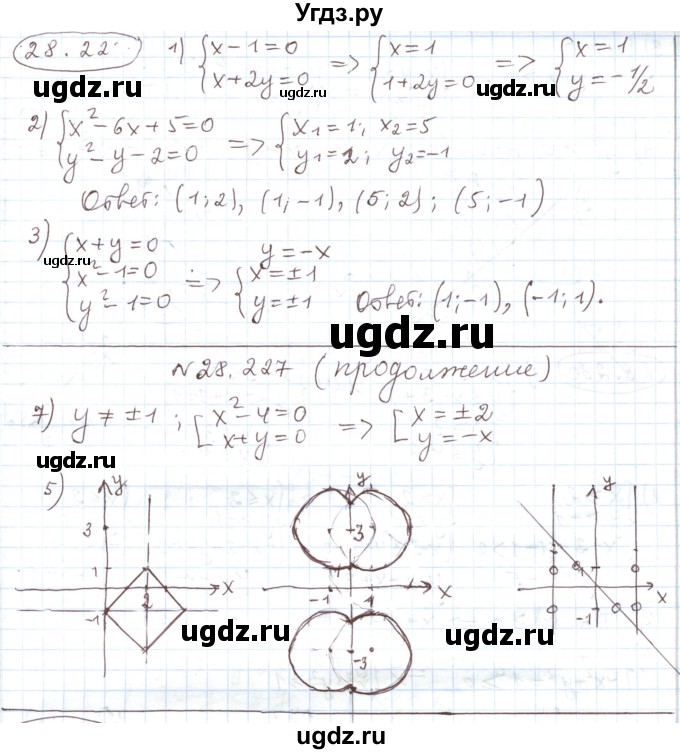 Угдз.ру
28.22 1) {x-1=0 x+2y=0 => {x=1 1+2y=0 => {x=1 y=-1/2
ugdz.ru ugdz.ru ugdz.ru ugdz.ru
2) {x²-6x+5=0 y²-y-2=0 => {x₁=1; x₂=5 y₁=2; y₂=-1
Ответ: (1;2), (1;-1), (5;2); (5;-1)
3) {x+y=0 x²-1=0 y²-1=0 => y=-x {x=±1 y=±1 Ответ: (1;-1), (-1;1).
ugdz.ru
ugdz.ru
№28.227 (продолжение)
7) y≠±1; [x²-4=0 x+y=0 => [x=±2 y=-x
ugdz.ru
5) y y y
3 3
1 1 1
2 x -1 1 x x
-1 -1
ugdz.ru ugdz.ru
-3
ugdz.ru